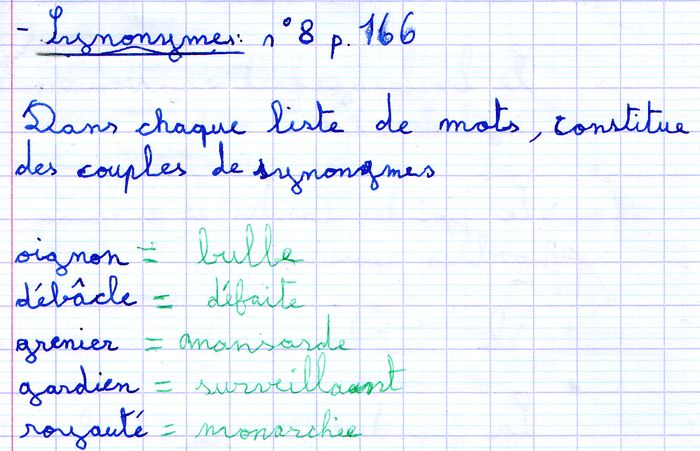 - Synonymes: n°8 p. 166
Dans chaque liste de mots, constitue
des couples de synonymes
oignon = bulbe
débâcle = défaite
grenier = mansarde
gardien = surveillant
royauté = monarchie